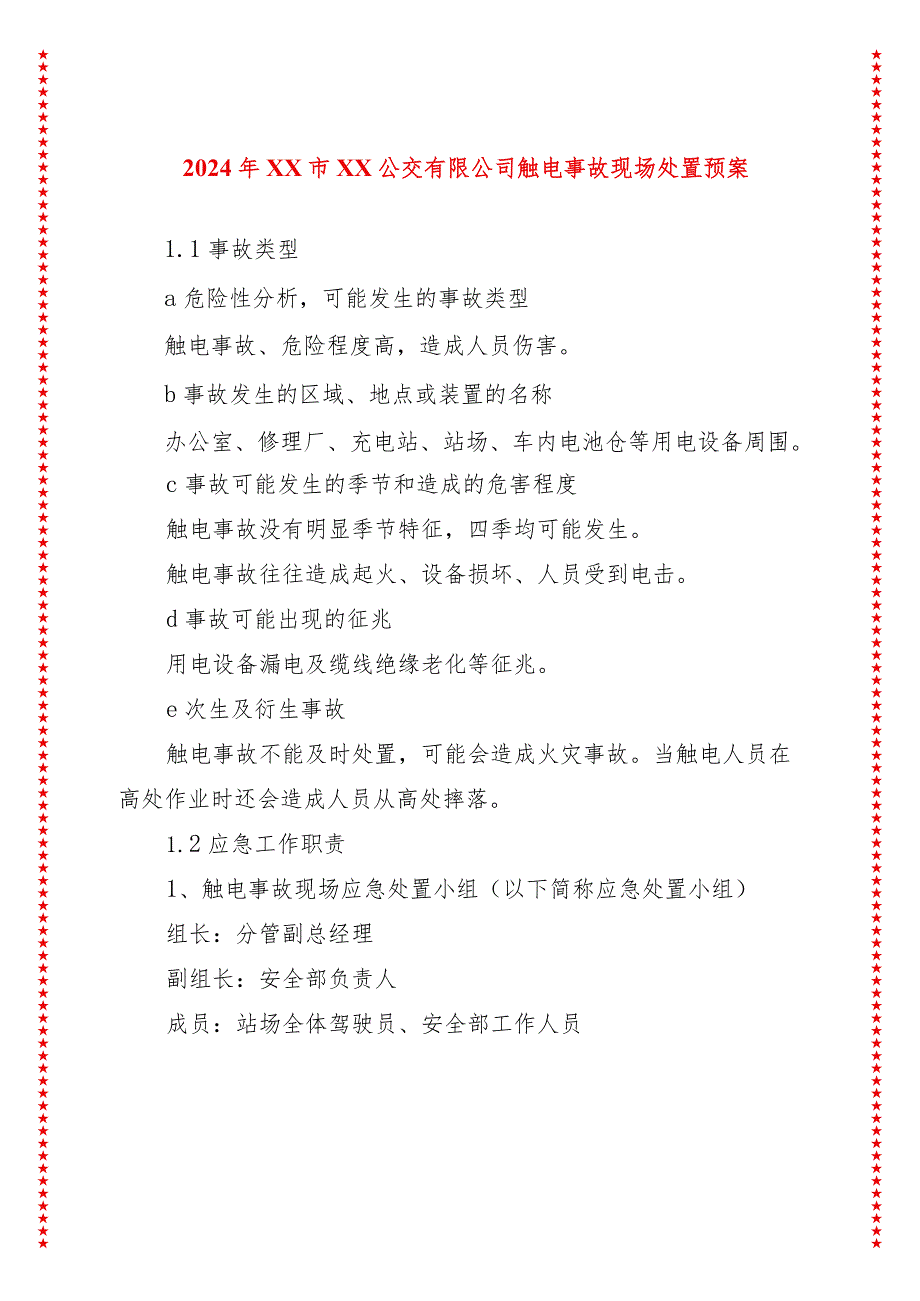 2024年XX市XX公交有限公司触电事故现场处置预案
1.1事故类型
a危险性分析，可能发生的事故类型
触电事故、危险程度高，造成人员伤害。
b事故发生的区域、地点或装置的名称
办公室、修理厂、充电站、站场、车内电池仓等用电设备周围。
c事故可能发生的季节和造成的危害程度
触电事故没有明显季节特征，四季均可能发生。
触电事故往往造成起火、设备损坏、人员受到电击。
d事故可能出现的征兆
用电设备漏电及缆线绝缘老化等征兆。
e次生及衍生事故
触电事故不能及时处置，可能会造成火灾事故。当触电人员在
高处作业时还会造成人员从高处摔落。
1.2应急工作职责
1、触电事故现场应急处置小组（以下简称应急处置小组）
组长：分管副总经理
副组长：安全部负责人
成员：站场全体驾驶员、安全部工作人员